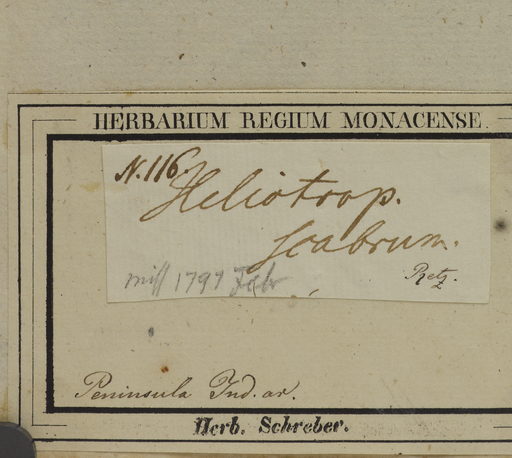 HERBARIUM REGIUM MONACENSE.
N. 116.
Heliotrop.
scabrum.
Retz.
miss 1797 Febr
Peninsula Ind. or.
Herb. Schreber.